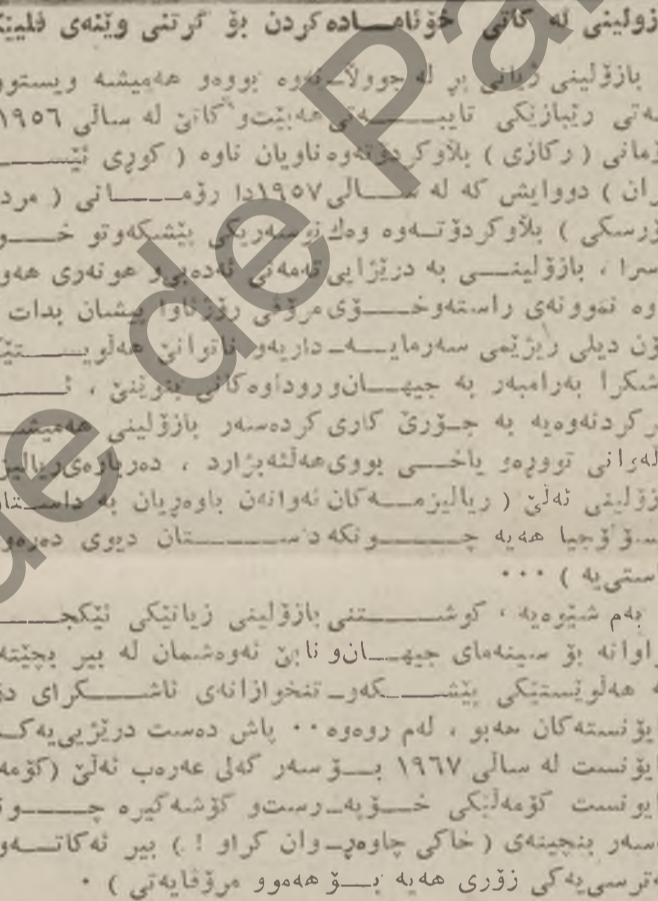 زولینی له کاتی خۆئامـــاده کردن بۆ گرتنی وێنەی فلیێ
بازۆلینی ژیانی پر له جوولاـنەوه بووەو هەمیشه ویستوو
ـەتی رێبازێکی تایبـــەتی هەبێت و کاتێ له سالی ١٩٥٦
ۆمانی ( رکازی ) بلاوکردۆتەوه ناویان ناوه ( کوری ئێســـ
ران ) دووایش که له ســالی ١٩٥٧دا رۆمـــانی ( مرد
ۆرسکی ) بلاوکردۆتـەوه وەك نوسەریکی پێشکەوتو خـــو
ـسرا ، بازۆلینــی به درێژایی تەمەنی ئەدەبی و هونەری هەو
ـوه نموونەی راستەوخـــۆی مرۆڤی رۆژئاوا پیشان بدات
ـۆن دیلی رژێمی سەرمایـــەـداریەو ناتوانێ هەلویـــستێك
ـشکرا بەرامبەر به جیهـــان و روداوەکانی بنوێنێ ، ئـــ
ـرکردنەوەیه به جــۆرێ کاری کردەسەر بازۆلینی هەمیشـــ
ـلەوانی توورەو یاخــی بووی هەلئەبژارد ، دەربارەی ریالیز
زۆلینی ئەلێ ( ریالیزمـــەکان ئەوانەن باوەریان به داســتان
ـسۆلۆجیا هەیه چـــونکه دســـتان دیوی دەرەو
ـاستی یه ) ٠٠٠
بەم شێوەیه ، کوشـــتنی بازۆلینی زیانێکی ئێکجـــ
ـراوانه بۆ سینەمای جیهـــان و نابێ ئەوەشمان له بیر بچێته
ـه هەلوێستێکی پێشـــکەوـ تنخوازانەی ئاشـــکرای دژ
ـایۆنستەکان هەبو ، لەم رووەوه ٠٠ پاش دەست درێژیی یەکــ
ـایۆنست له سالی ١٩٦٧ بـــۆ سەر گەلی عەرەب ئەلێ (کۆمە
ـایونست کۆمەلێکی خـــۆپەـرست و کۆشەگیره چـــون
ـسەر بنچینەی ( خاکی چاوەرـوان کراو ! ) بیر ئەکاتـــەو
ـەترسی یەکی زۆری هەیه بـــۆ هەموو مرۆڤایەتی ) ٠